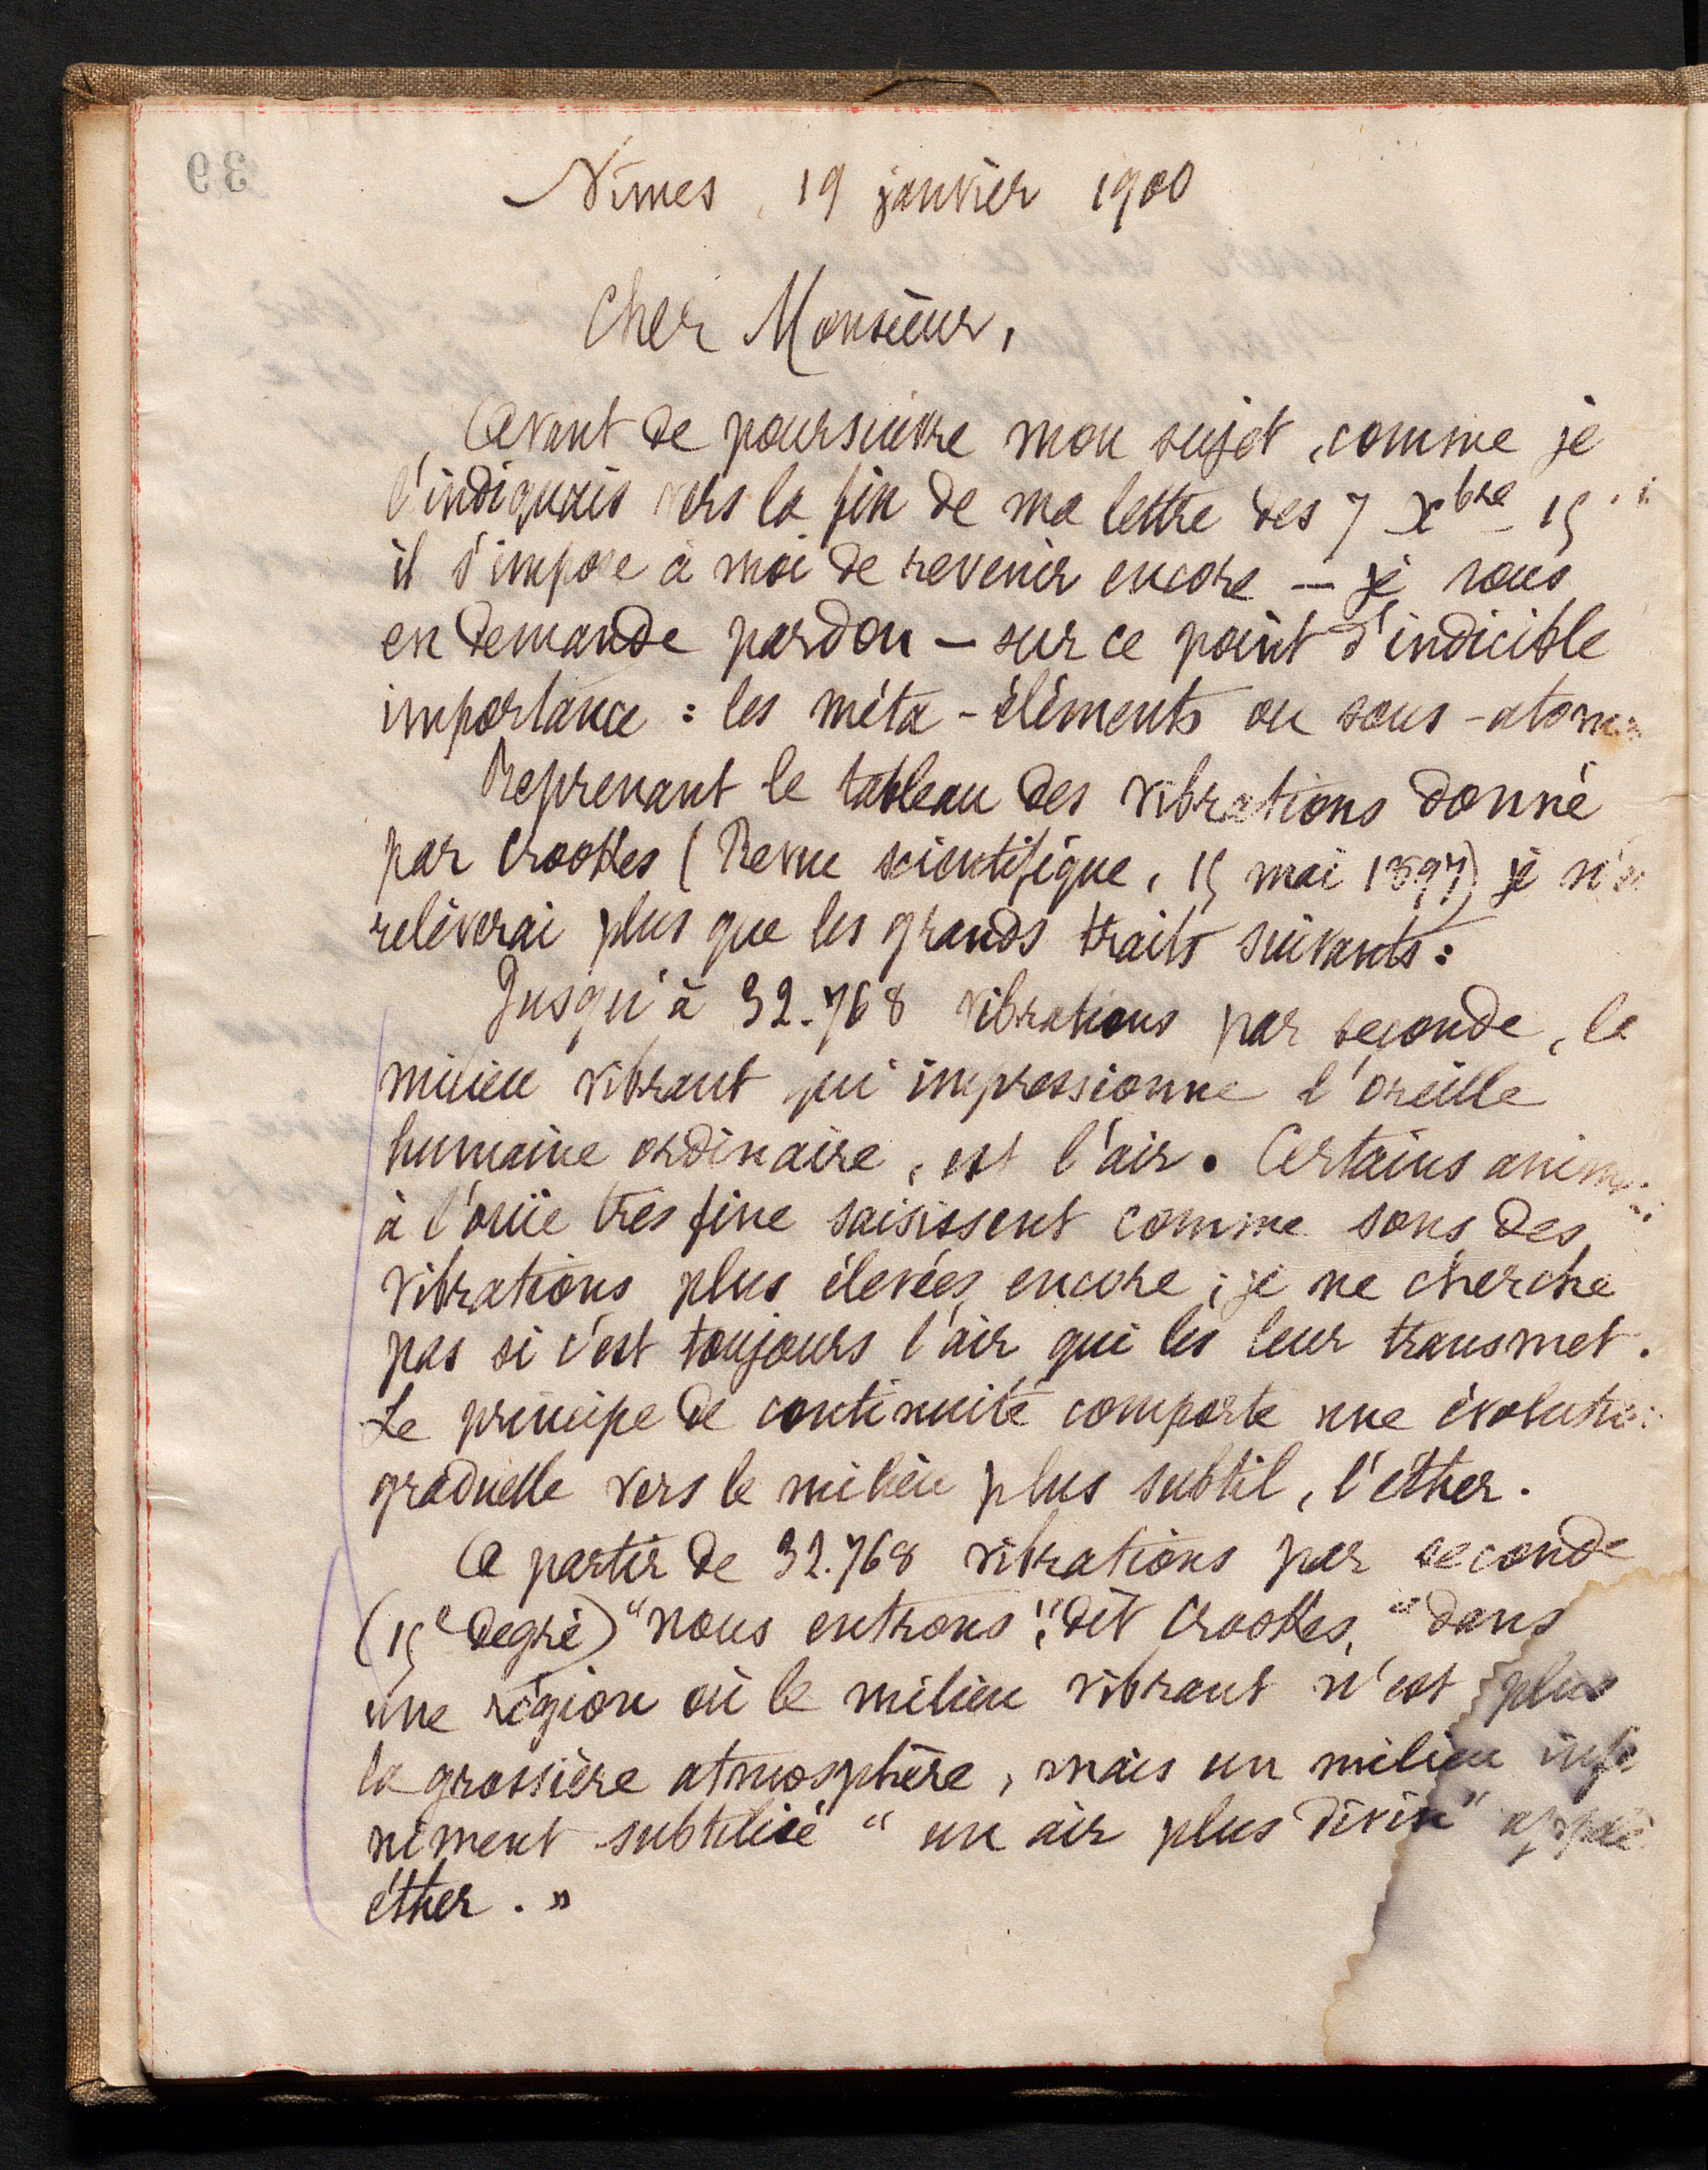 39
Nîmes, 19 janvier 1900
Cher Monsieur,
Avant de poursuivre mon sujet, comme je
l'indiquais vers la fin de ma lettre des 7 Xbre 15
il s'impose à moi de revenir encore — je vous
en demande pardon — sur ce point d'indicible
importance : les méta-éléments ou sous-atom
Reprenant le tableau des vibrations donné
par Crookes (Revue scientifique, 15 mai 1897) je n'en
relèverai plus que les grands traits suivants :
Jusqu'à 32.768 vibrations par seconde, le
milieu vibrant qui impressionne l'oreille
humaine ordinaire, est l'air. Certains anim
à l'ouïe très fine saisissent comme sons des
vibrations plus élevées encore ; je ne cherche
pas si c'est toujours l'air qui les leur transmet.
Le principe de continuité comporte une évolution
graduelle vers le milieu plus subtil, l'éther.
A partir de 32.768 vibrations par seconde
(15e degré) "nous entrons", dit Crookes, "dans
une région où le milieu vibrant n'est plus
la grossière atmosphère, mais un milieu infi
niment subtilisé "un air plus divin" appelé
éther. »